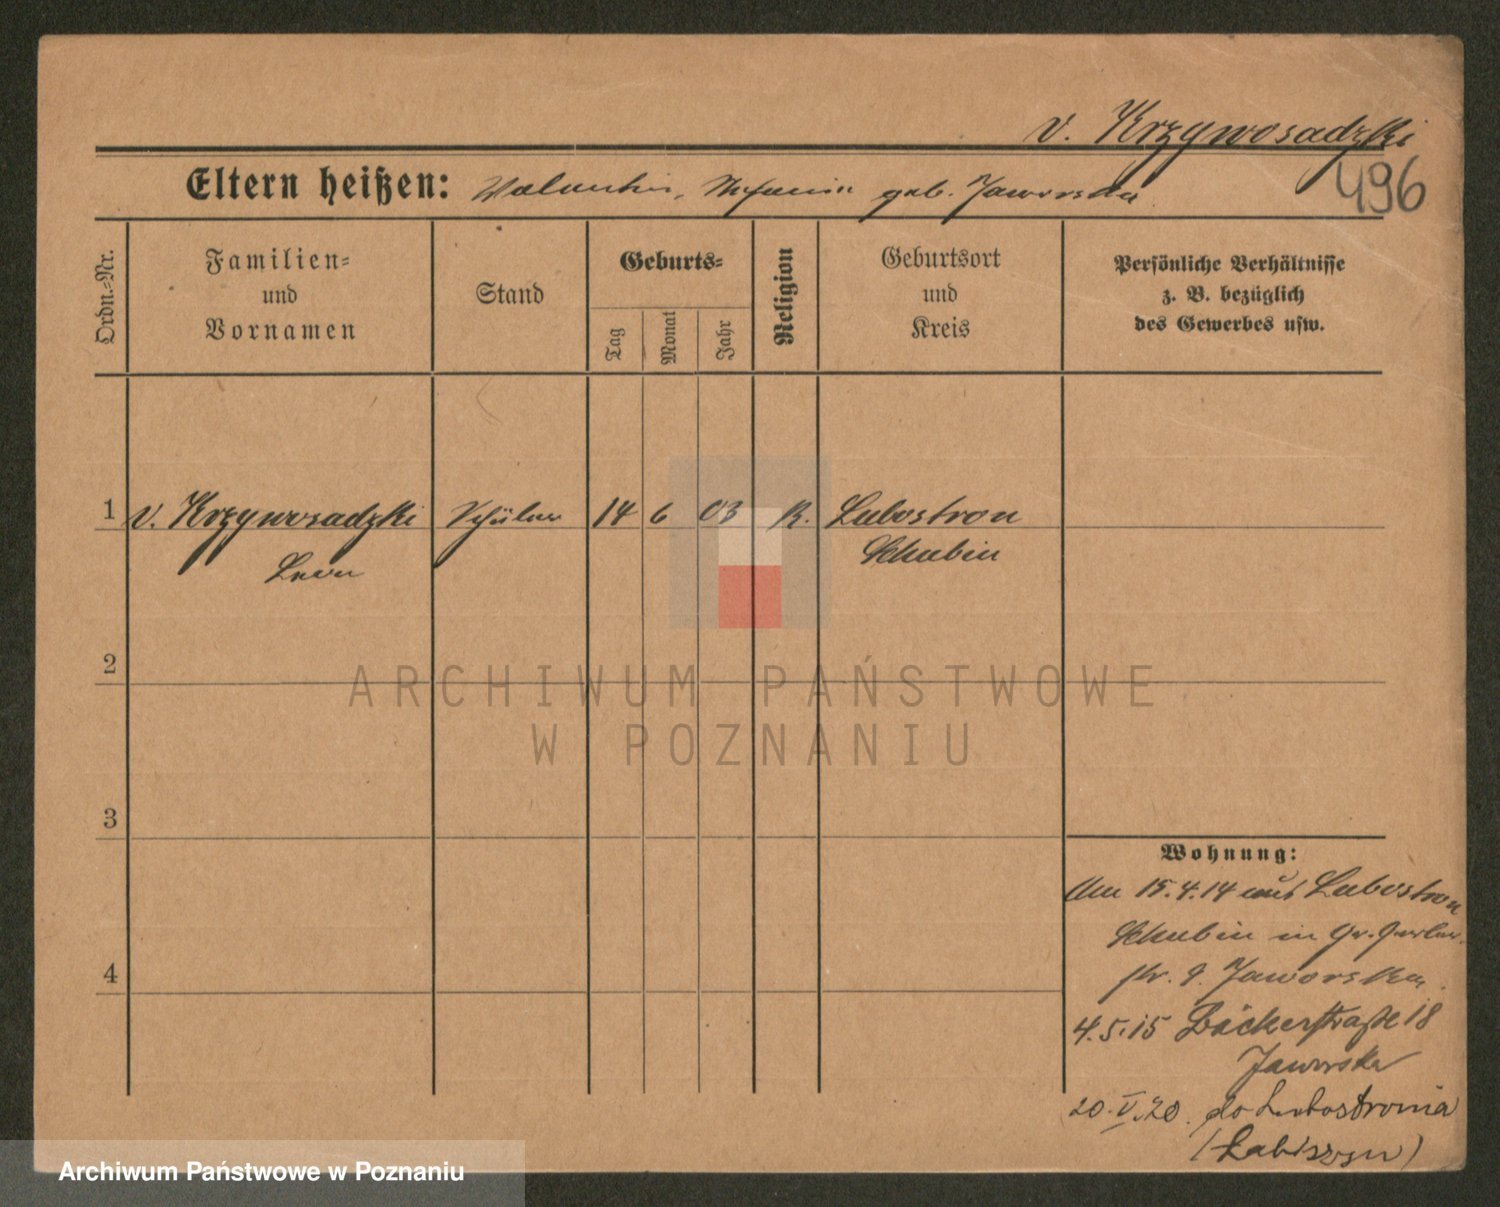 v. Krzywosadzki
496
Eltern heißen: Valentin, Stefania geb. Jaworska
Ordn.=Nr.
Familien=
und
Vornamen
Stand
Geburts=
Tag
Monat
Jahr
Religion
Geburtsort
und
Kreis
Persönliche Verhältnisse
z. B. bezüglich
des Gewerbes usw.
1 v. Krzywosadzki Schüler 14 6 03 K. Lubostron
Leon Schubin
2
ARCHIWUM PAŃSTWOWE
W POZNANIU
3
Wohnung:
Am 15.4.14 aus Lubostron
Schubin in Gr. Gerber
str. 9. Jaworska
4
4.5.15 Bäckerstraße 18
Jaworska
20.V.20. do Lubostronia
(Łabiszyn)
Archiwum Państwowe w Poznaniu